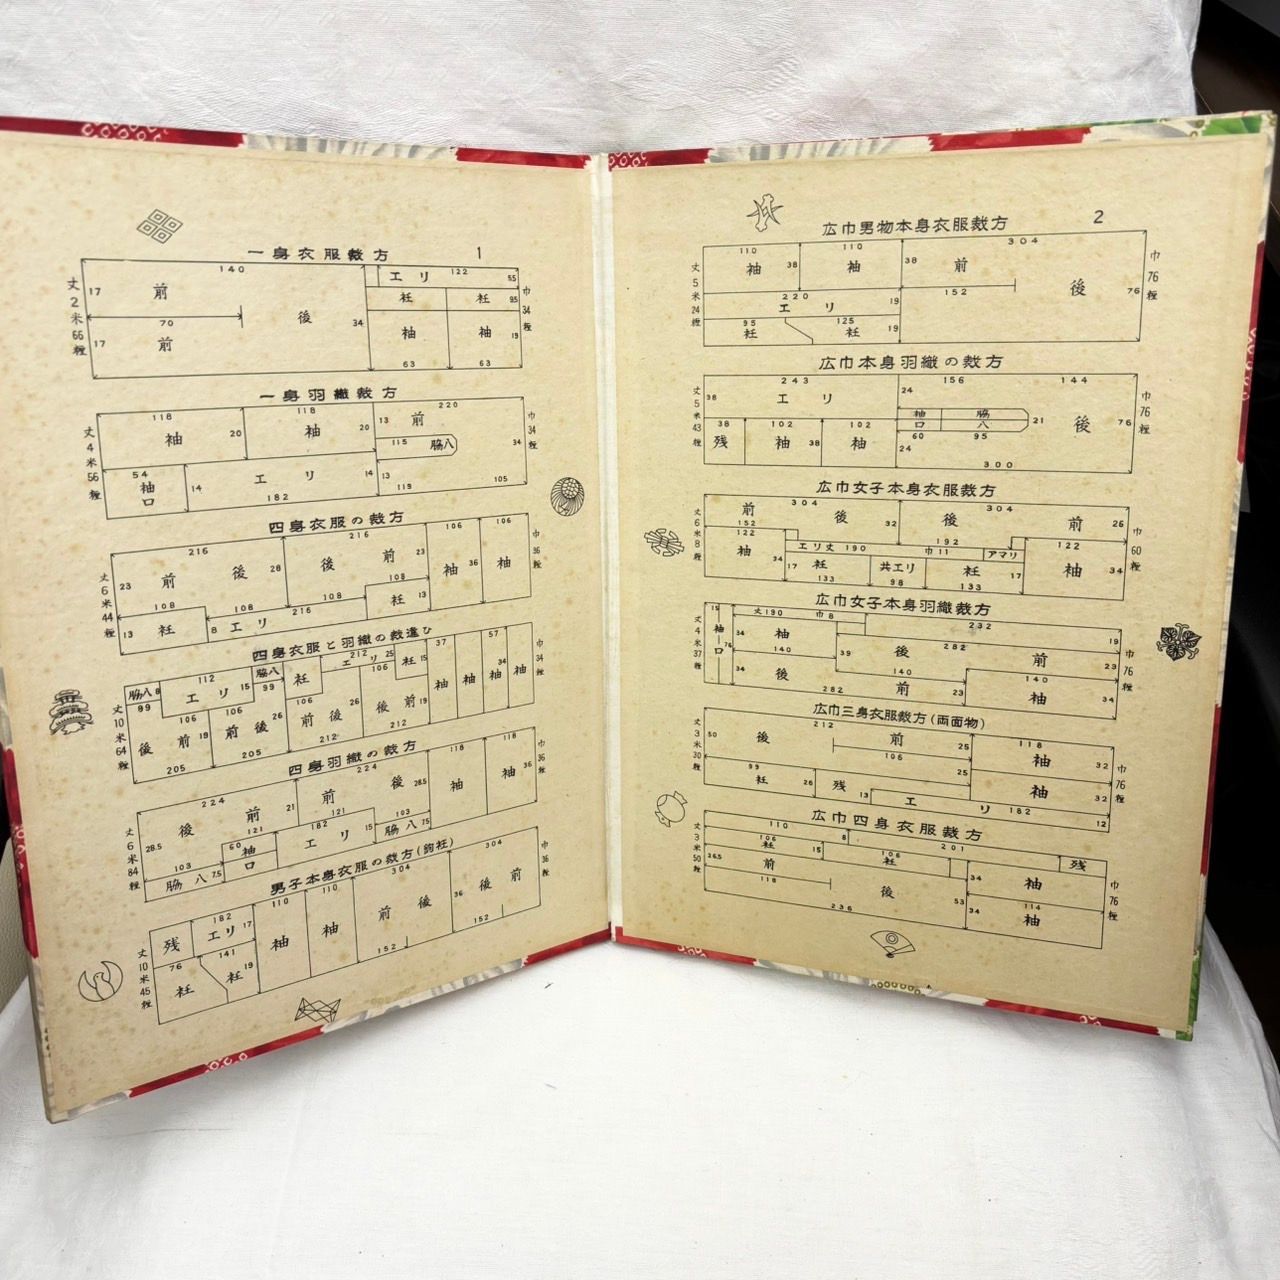 一身衣服裁方 1
140
エリ 122 5.5
17 前
衽 衽 9.5
後 34
70
17 前
袖 袖 19
63 63
丈2米66糎
巾34糎
一身羽織裁方
118 118 220
袖 20 袖 20 13 前
115 脇八 34
54 袖口 14 エリ 14 13
182 119 105
丈4米56糎
巾34糎
四身衣服の裁方
216 216 106 106
23 前 後 28 後 前 23 袖 36 袖
108 108 108 108
13 衽 8 エリ 216 衽 13
丈6米44糎
巾36糎
四身衣服と羽織の裁違ひ
脇八 8 112 脇八 212 25 衽 15 37 57
89 エリ 15 99 衽 エリ 106
106 106 106 34
後 前 19 前 後 26 前 後 26 後 前 19 袖 袖 袖 袖
205 205 212 212
丈10米64糎
巾34糎
四身羽織の裁方
224 224 118 118
後 前 21 前 後 28.5 袖 袖 36
28.5 121 182 121 103
103 60 袖口 エリ 15 脇八 7.5
脇八 7.5
丈6米84糎
巾36糎
男子本身衣服の裁方(鉤衽)
182 110 110 304 304
残 エリ 17 袖 袖 前 後 36 後 前
76 141
衽 衽 19 152 152
丈10米45糎
巾36糎
広巾男物本身衣服裁方 2
110 110 304
袖 38 袖 38 前
220 19 152 後 76
エリ
95 125
衽 衽 19
丈5米24糎
巾76糎
広巾本身羽織の裁方
243 156 144
38 エリ 24
袖口 脇八 21 後 76
38 102 102 60 95
残 袖 38 袖 24
300
丈5米43糎
巾76糎
広巾女子本身衣服裁方
304 304
前 後 32 後 前 26
152 192
122 エリ丈 190 巾11 アマリ 122
袖 34 17 衽 共エリ 衽 17 袖 34
133 98 133
丈6米8糎
巾60糎
広巾女子本身羽織裁方
15 丈190 巾8 232 19
袖口 76 34 袖 282
140 39 後 前 23
34 後 140 140
282 前 23 袖 34
丈4米37糎
巾76糎
広巾三身衣服裁方(両面物)
212 118
50 後 前 25 袖 32
106
99 25
衽 26 残 袖 32
13 エリ 182 12
丈3米30糎
巾76糎
広巾四身衣服裁方
110 8 201
106 106 残
衽 15 衽
26.5 前 34 袖
118 後 53 114
236 34 袖
丈3米50糎
巾76糎